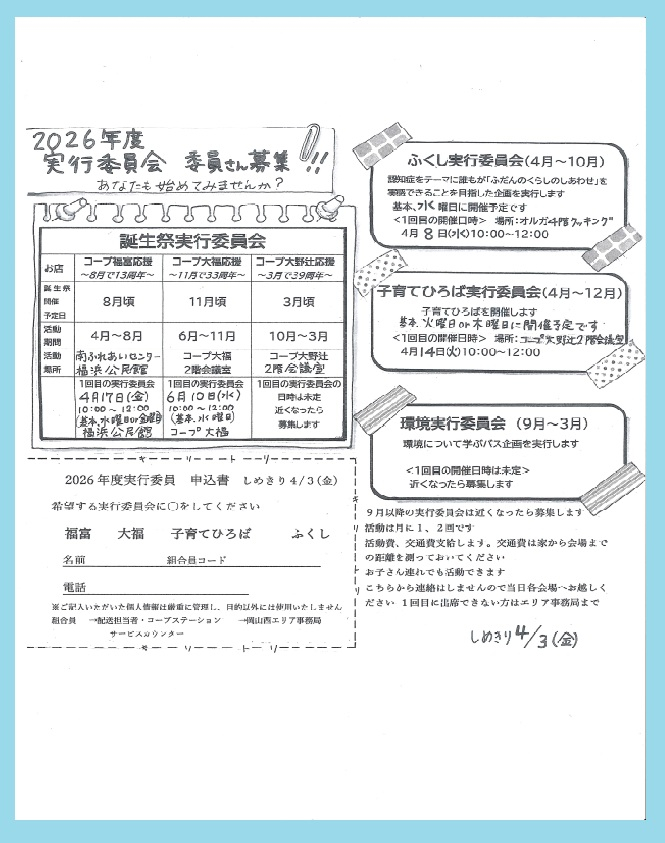 2026年度
実行委員会 委員さん募集!!
あなたも始めてみませんか?
誕生祭実行委員会
お店
コープ福富応援
～8月で13周年～
コープ大福応援
～11月で33周年～
コープ大野辻応援
～3月で39周年～
誕生祭
開催
予定日
8月頃
11月頃
3月頃
活動
期間
4月～8月
6月～11月
10月～3月
活動
場所
南ふれあいセンター
福浜公民館
コープ大福
2階会議室
コープ大野辻
2階会議室
1回目の実行委員会
4月17日(金)
10:00～12:00
(基本、水曜日or金曜日)
福浜公民館
1回目の実行委員会
6月10日(水)
10:00～12:00
(基本、水曜日)
コープ大福
1回目の実行委員会の
日時は未定
近くなったら
募集します
キーリートーリ
2026年度実行委員 申込書 しめきり4/3(金)
希望する実行委員会に〇をしてください
福富 大福 子育てひろば ふくし
名前 組合員コード
電話
※ご記入いただいた個人情報は厳重に管理し、目的以外には使用いたしません
組合員 →配送担当者・コープステーション →岡山西エリア事務局
サービスカウンター
キーリートーリ
ふくし実行委員会(4月～10月)
認知症をテーマに誰もが「ふだんのくらしのしあわせ」を
実感できることを目指した企画を実行します
基本、水曜日に開催予定です
<1回目の開催日時> 場所:オルガ4階クッキング
4月8日(水)10:00～12:00
子育てひろば実行委員会(4月～12月)
子育てひろばを開催します
基本、火曜日or木曜日に開催予定です
<1回目の開催日時> 場所:コープ大野辻2階会議室
4月14日(火)10:00～12:00
環境実行委員会 (9月～3月)
環境について学ぶバス企画を実行します
<1回目の開催日時は未定>
近くなったら募集します
9月以降の実行委員会は近くなったら募集します
活動は月に1、2回です
活動費、交通費支給します。交通費は家から会場まで
の距離を測っておいてください
お子さん連れでも活動できます
こちらから連絡はしませんので当日各会場へお越しく
ださい 1回目に出席できない方はエリア事務局まで
しめきり4/3(金)